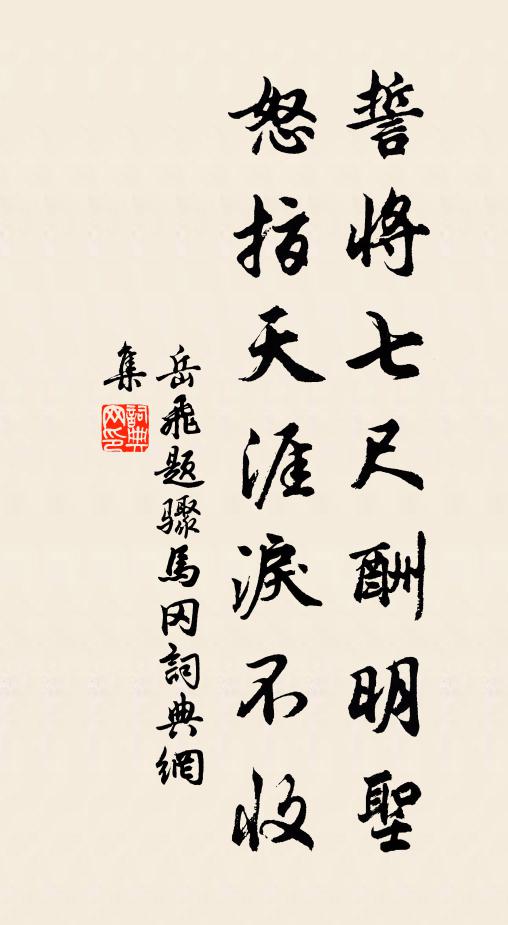 誓將七尺酬明聖
怒指天涯淚不收
岳飛題驟馬冈詞典網
集
詞典
网印